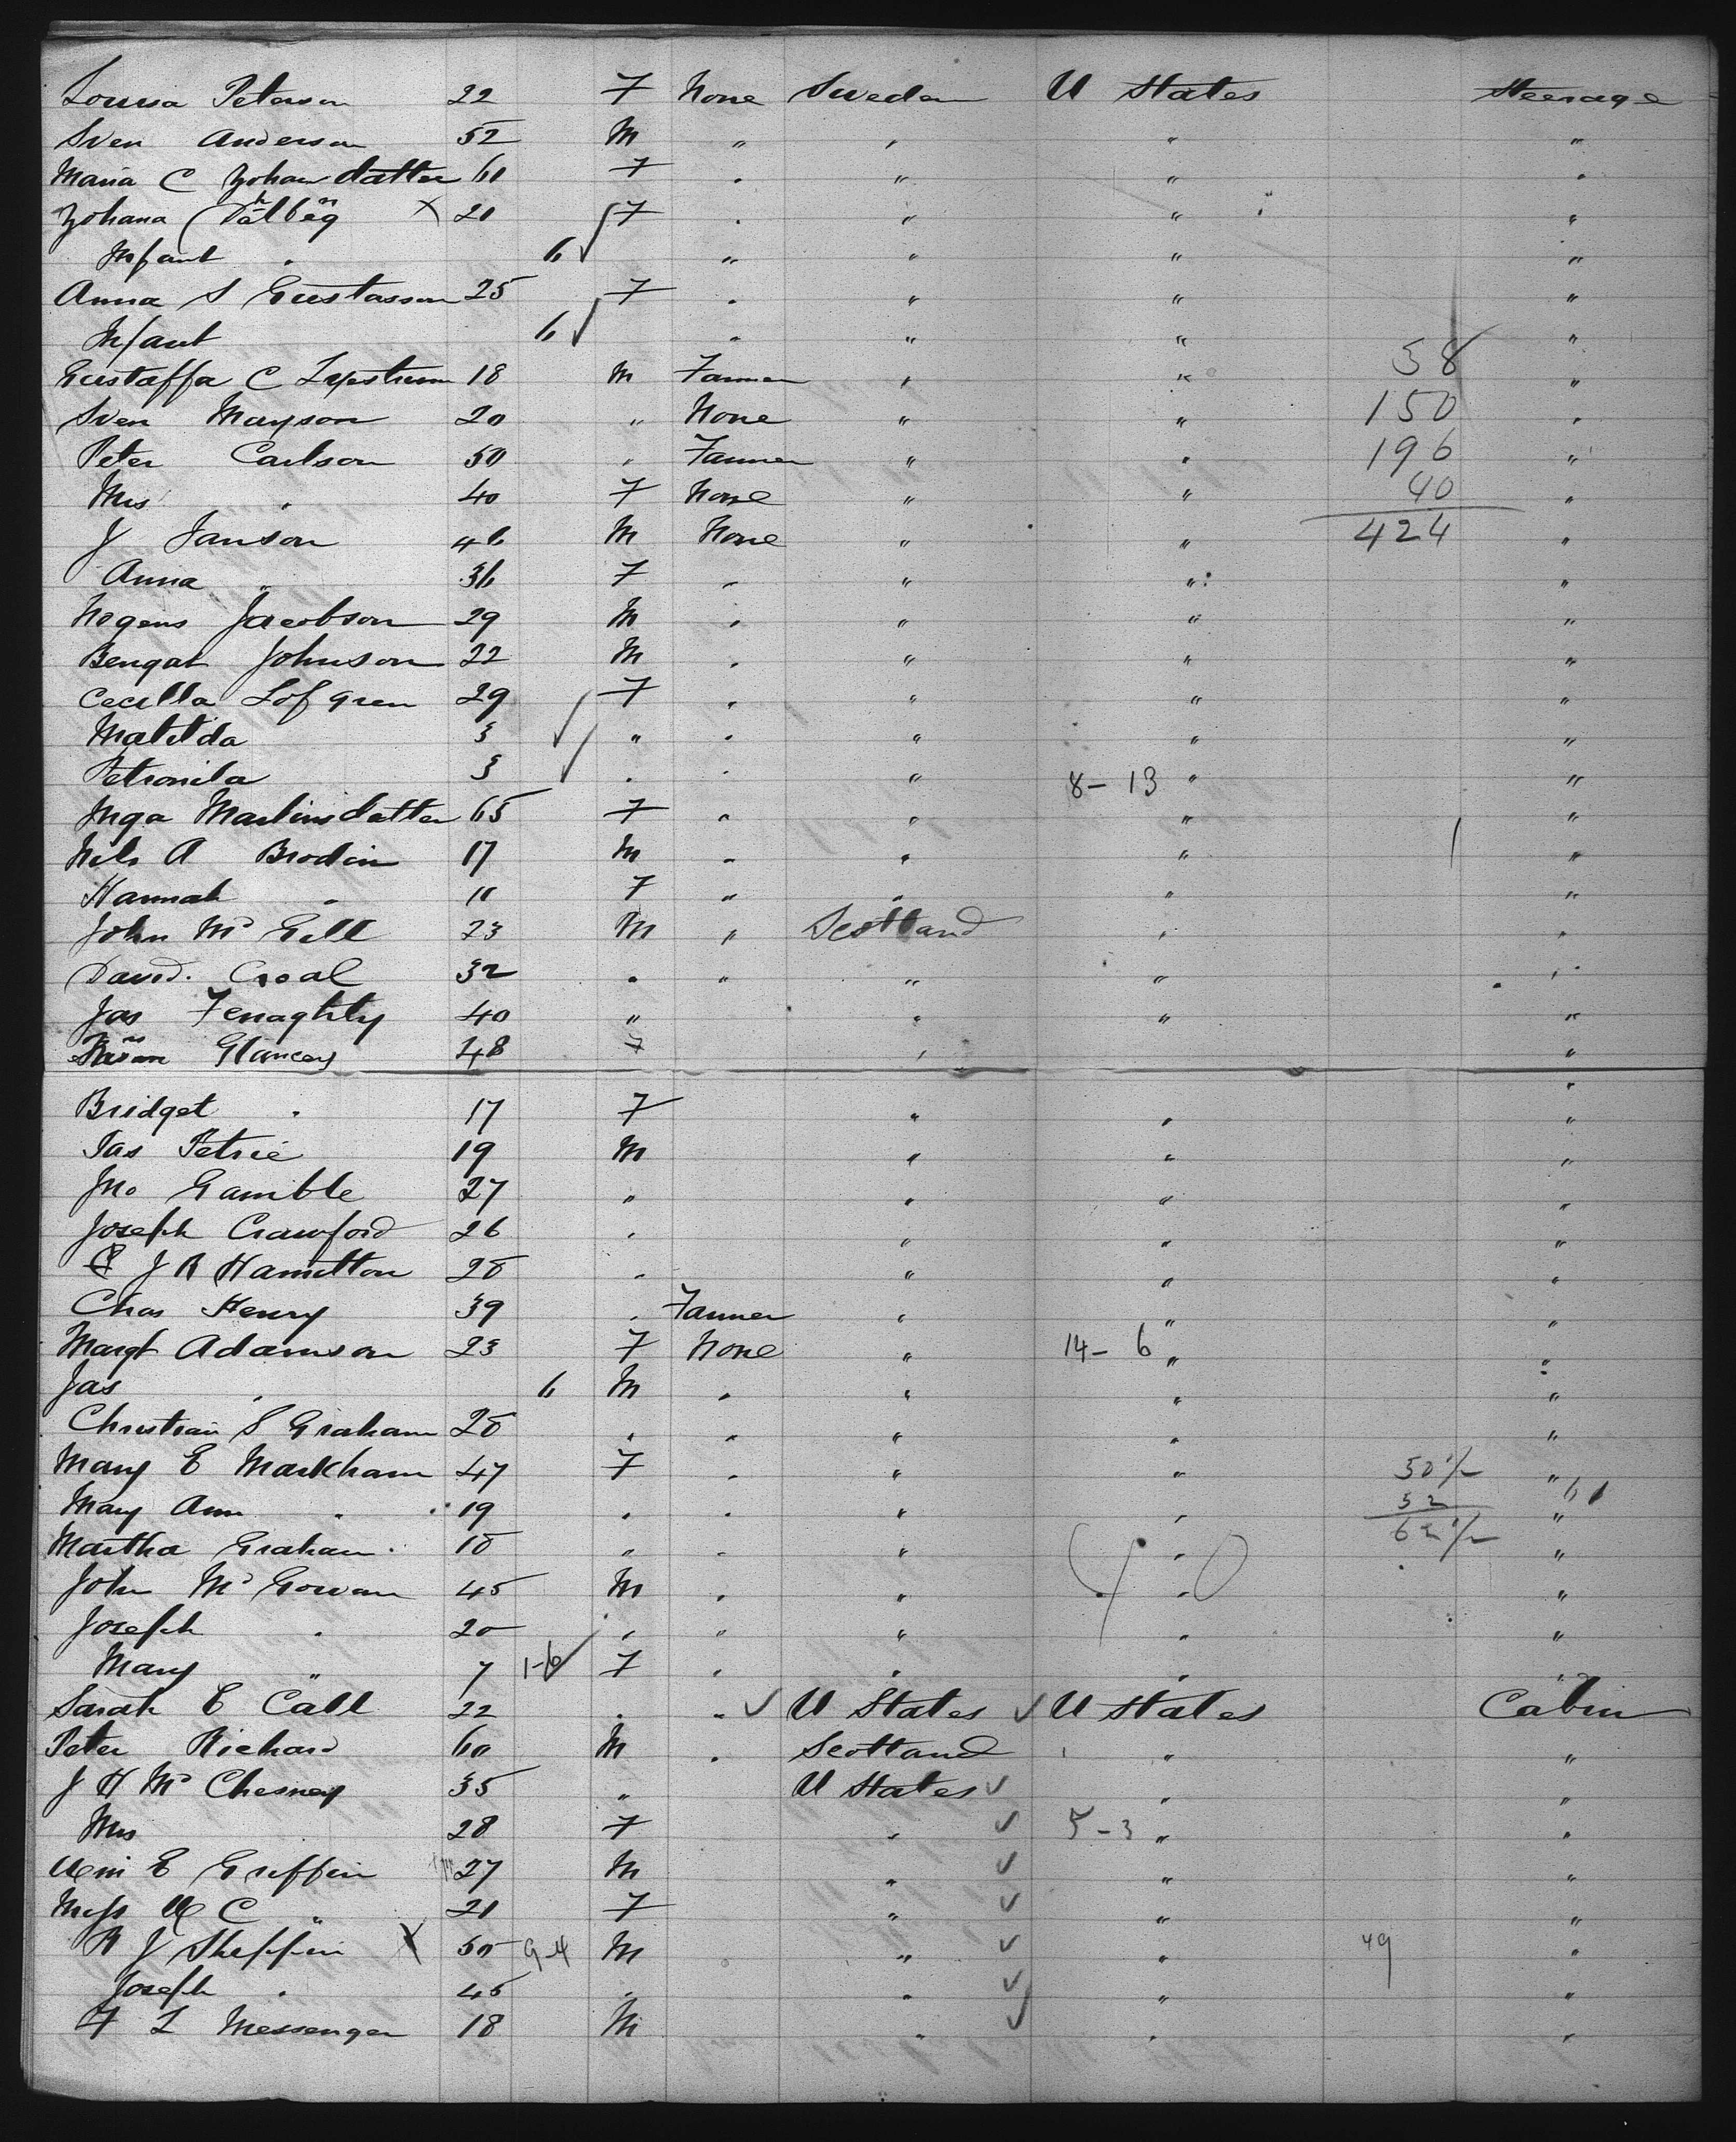 Louisa Peterson 22 F None Sweden U States Steerage
Sven Anderson 52 M " " " "
Maria C Johansdatter 60 F " " " "
Johana 20 F " " " "
Infant " 6 " " " "
Anna S Gustasson 25 F " " " "
Infant 6 " " " "
Gustaffa C 18 M Farmer " " 58 "
Sven Mayson 20 " None " " 150 "
Peter Carlson 50 " Farmer " " 196 "
Mrs " 40 F None " " 40 "
J Janson 46 M None " " 424 "
Anna " 36 F " " " "
Jacobson 29 M " " " "
Bengat Johnson 22 M " " " "
Cecilla Lofgren 29 F " " " "
Matilda 3 " " " " "
Petronila 3 " " " 8-13 " "
Inga Martinsdatter 65 F " " " "
Nels A Brodin 17 M " " " "
Hannah " 11 F " " " "
John Mc Gill 23 M " Scotland " "
David. Croal 32 " " " " "
Jas Fenaghty 40 " " " "
Glancey 48 F " "
Bridget " 17 F " " "
Jas Petrie 19 M " " "
Jno Gamble 27 " " " "
Joseph Crawford 26 " " " "
J R Hamilton 28 " " " "
Chas Henry 39 " Farmer " " "
Margt Adamson 23 F None " 14-6 " "
Jas " 6 M " " " "
Christian S Graham 28 " " " " "
Mary E Markham 47 F " " " 50 "
Mary Ann " 19 " " " " "
Martha Graham 18 " " " " "
John Mc Gowan 45 M " " " "
Joseph " 20 " " " " "
Mary " 7 1-6 F " " " "
Sarah E Call 22 " " U States U States Cabin
Peter Richard 60 M " Scotland " "
J H Mc Chesney 35 " U States " "
Mrs 28 F " 5-3 " "
E Griffin 27 M " " "
Miss M C " 21 F " " "
R J Sheffin X 50 9-4 M " " 49 "
Joseph " 45 " " " "
F L Messenger 18 M " " "